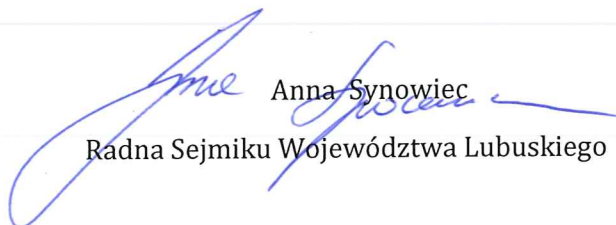 Anna Synowiec
Radna Sejmiku Województwa Lubuskiego